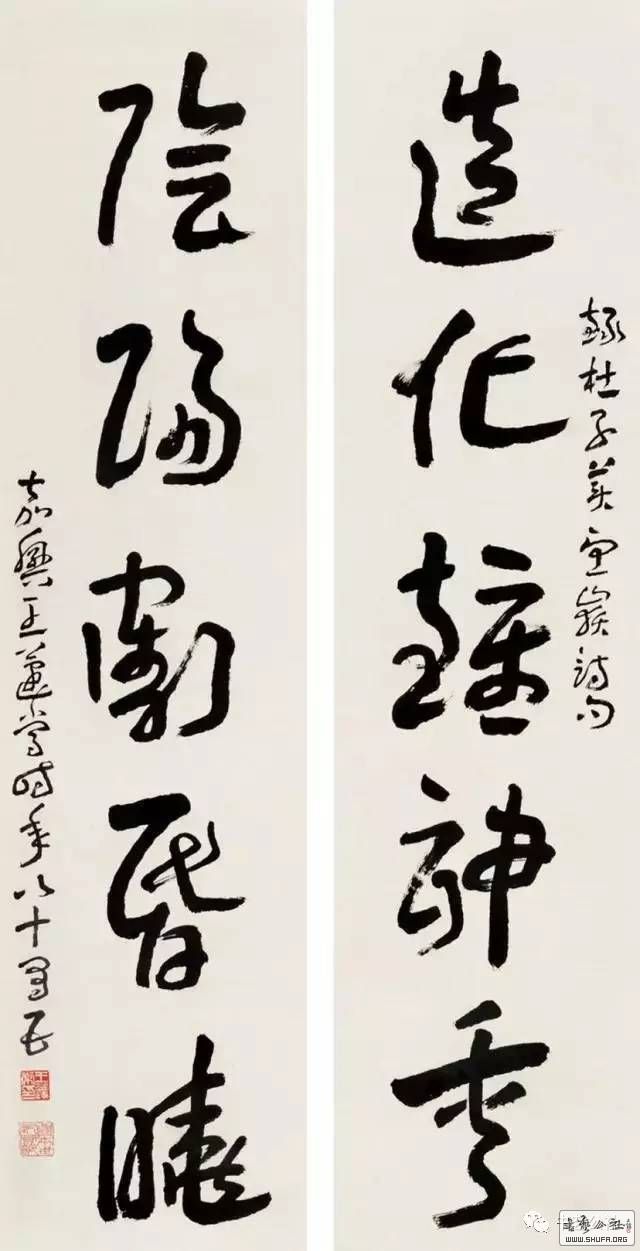 錄杜子美望嶽詩句
造化鍾神秀
陰陽割昏曉
嘉興王蘧常時年八十有五
書藝公社
WWW.SHUFA.ORG